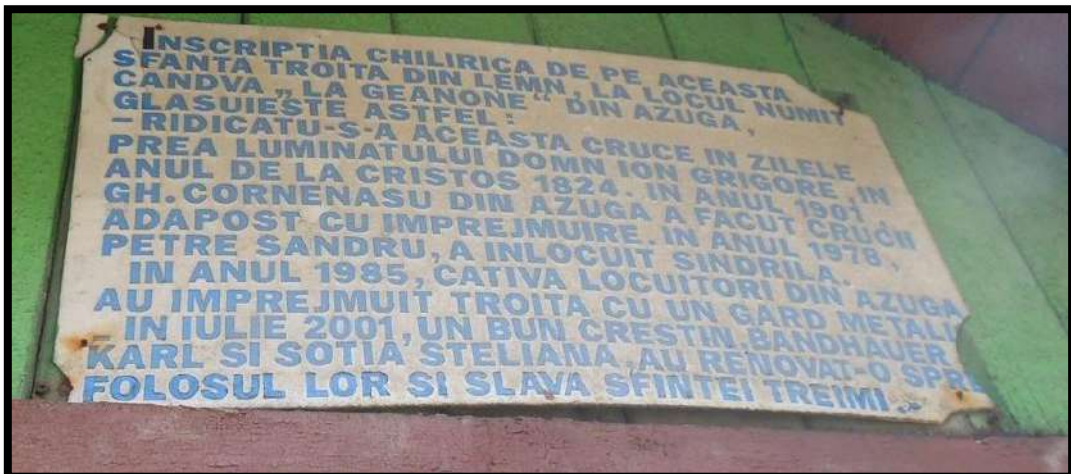 INSCRIPTIA CHILIRICA DE PE ACEASTA
SFANTA TROITA DIN LEMN, LA LOCUL NUMIT
CANDVA „ LA GEANONE“ DIN AZUGA,
GLASUIESTE ASTFEL:
– RIDICATU-S-A ACEASTA CRUCE IN ZILELE
PREA LUMINATULUI DOMN ION GRIGORE, IN
ANUL DE LA CRISTOS 1824. IN ANUL 1901
GH. CORNENASU DIN AZUGA A FACUT CRUCII
ADAPOST CU IMPREJMUIRE. IN ANUL 1978,
PETRE SANDRU, A INLOCUIT SINDRILA.
IN ANUL 1985, CATIVA LOCUITORI DIN AZUGA
AU IMPREJMUIT TROITA CU UN GARD METALIC
– IN IULIE 2001, UN BUN CRESTIN, BANDHAUER
KARL SI SOTIA STELIANA, AU RENOVAT-O SPRE
FOLOSUL LOR SI SLAVA SFINTEI TREIMI.»